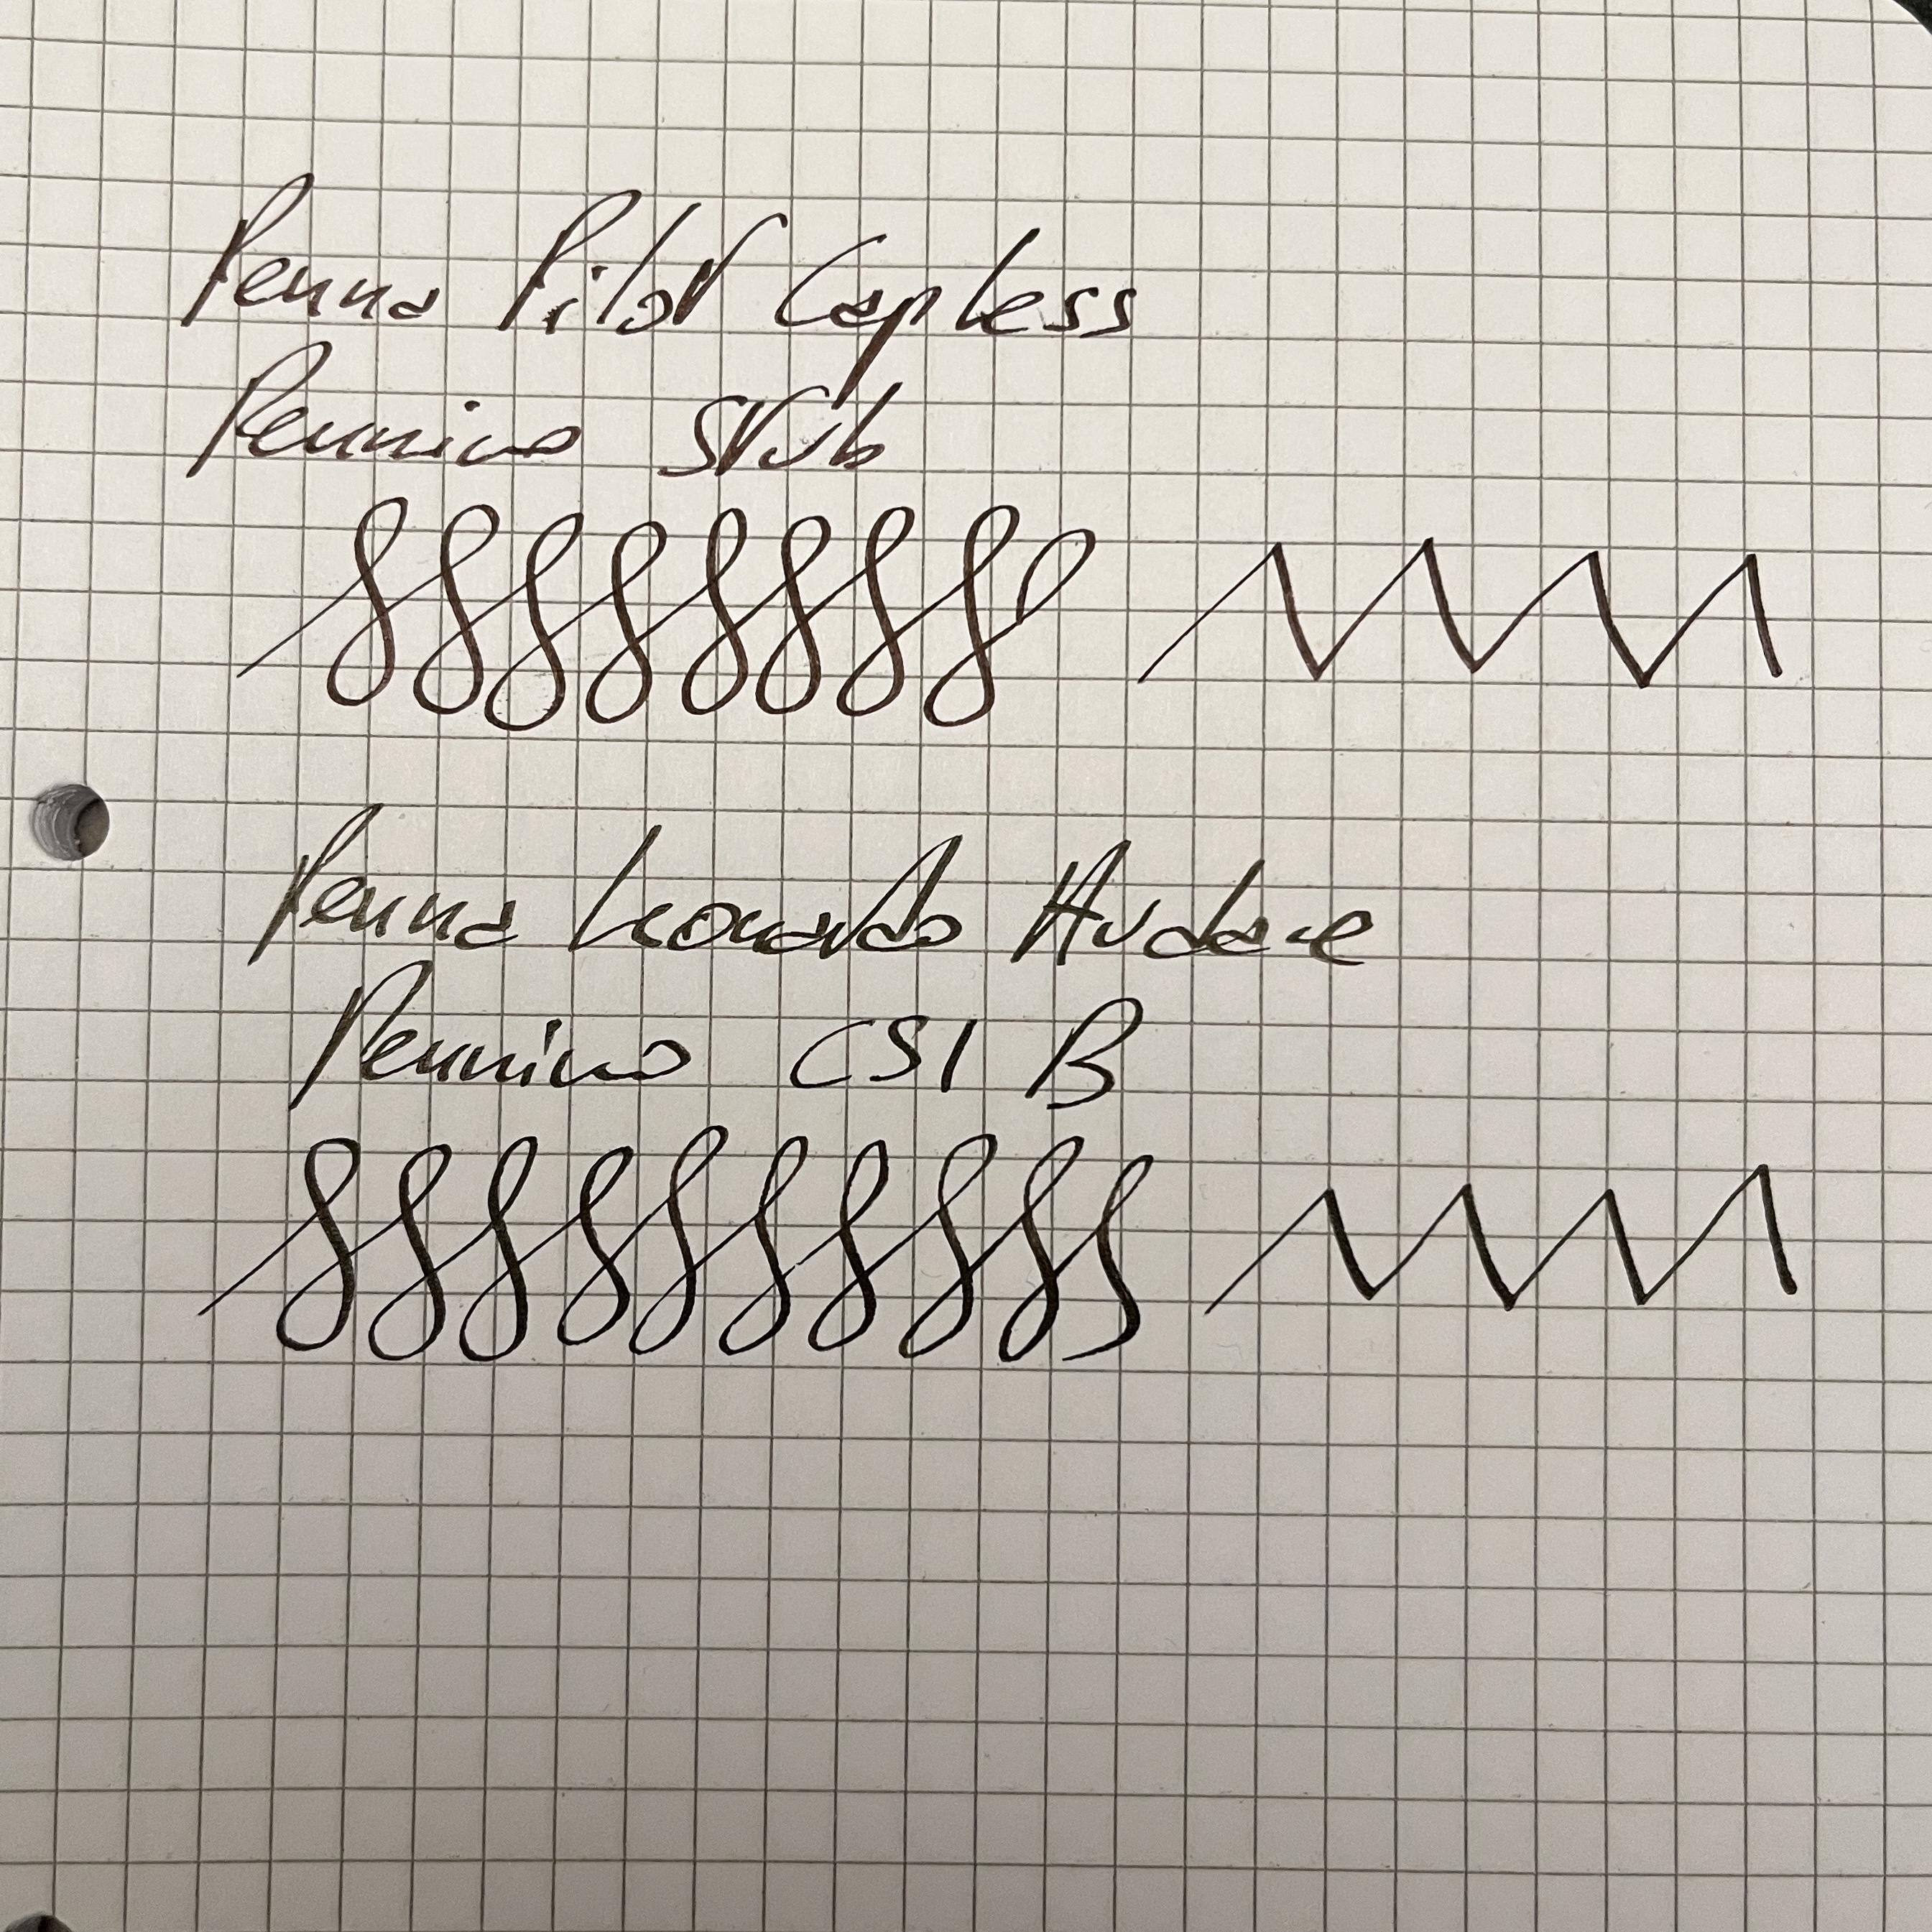 Penna Pilot Capless
Pennino Stub
Penna Leonardo Audace
Pennino CSI B